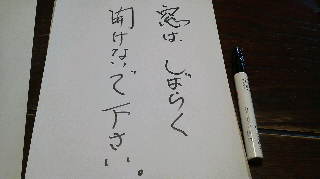 窓は しばらく
開けないで下さい。